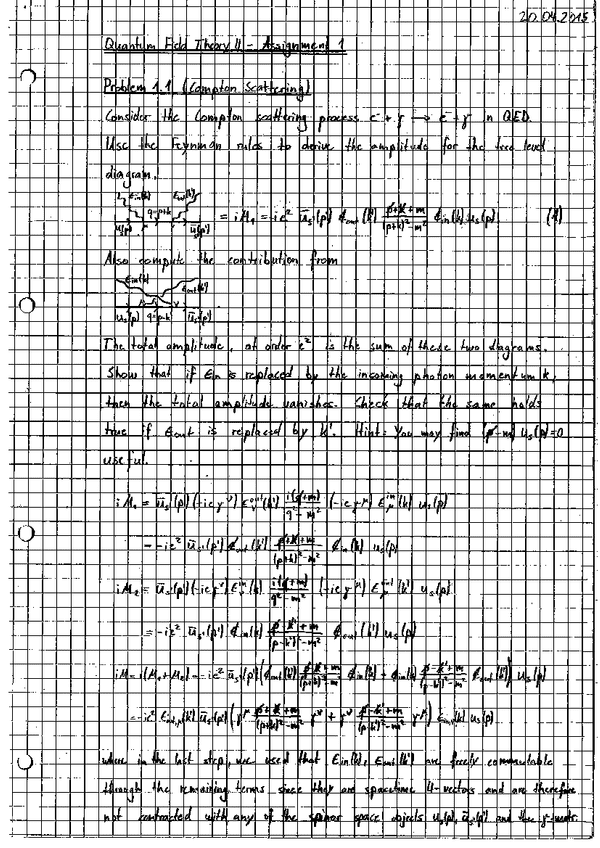 20.04.2015
Quantum Field Theory II - Assignment 1
Problem 1.1 (Compton Scattering)
Consider the Compton scattering process e⁻ + γ → e⁻ + γ in QED.
Use the Feynman rules to derive the amplitude for the tree level
diagram,
ε_in(k) ε_out(k')
q=p+k
u_s(p) ū_s'(p') = iM₁ = -ie² ū_s'(p') ε̸_out(k') (p̸+k̸+m)/((p+k)²-m²) ε̸_in(k) u_s(p) (1)
Also compute the contribution from
ε_in(k) ε_out(k')
u_s(p) q=p-k' ū_s'(p')
The total amplitude, at order e² is the sum of these two diagrams.
Show that if ε_in is replaced by the incoming photon momentum k,
then the total amplitude vanishes. Check that the same holds
true if ε_out is replaced by k'. Hint: You may find (p̸-m) u_s(p)=0
useful.
iM₁ = ū_s'(p') (-ieγ^ν) ε_ν^out(k') i(q̸+m)/(q²-m²) (-ieγ^μ) ε_μ^in(k) u_s(p)
= -ie² ū_s'(p') ε̸_out(k') (p̸+k̸+m)/((p+k)²-m²) ε̸_in(k) u_s(p)
iM₂ = ū_s'(p') (-ieγ^ν) ε_ν^in(k) i(q̸+m)/(q²-m²) (-ieγ^μ) ε_μ^out(k') u_s(p)
= -ie² ū_s'(p') ε̸_in(k) (p̸-k̸'+m)/((p-k')²-m²) ε̸_out(k') u_s(p)
iM = i(M₁+M₂) = -ie² ū_s'(p') (ε̸_out(k') (p̸+k̸+m)/((p+k)²-m²) ε̸_in(k) + ε̸_in(k) (p̸-k̸'+m)/((p-k')²-m²) ε̸_out(k')) u_s(p)
= -ie² ε_out,μ(k') ū_s'(p') (γ^μ (p̸+k̸+m)/((p+k)²-m²) γ^ν + γ^ν (p̸-k̸'+m)/((p-k')²-m²) γ^μ) ε_in,ν(k) u_s(p)
where in the last step, we used that ε_in(k), ε_out(k') are freely commutable
through the remaining terms since they are spacetime 4-vectors and are therefore
not contracted with any of the spinor space objects u_s(p), ū_s'(p') and the γ-matr.